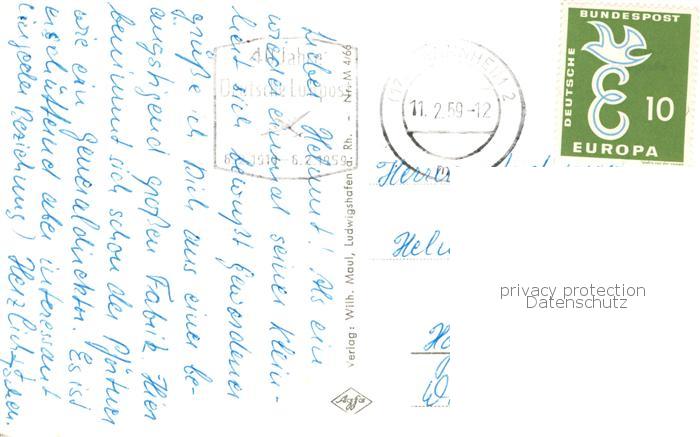 Lieber Helmut! Als ein
wieder einmal seiner Klein-
heit sich bewußt gewordener
grüße ich Dich aus einer be-
ängstigend großen Fabrik. Hier
benimmt sich schon der Pförtner
wie ein Generaldirektor. Es ist
erschütternd aber interessant
(in jeder Beziehung) Herzlichst
40 Jahre
Deutsche Luftpost
1919 - 6.2.1959
11.2.59-12
DEUTSCHE BUNDESPOST
10
EUROPA
Verlag: Wilh. Maul, Ludwigshafen a. Rh. - Nr. M 4/66
Agfa
Herrn
privacy protection
Datenschutz